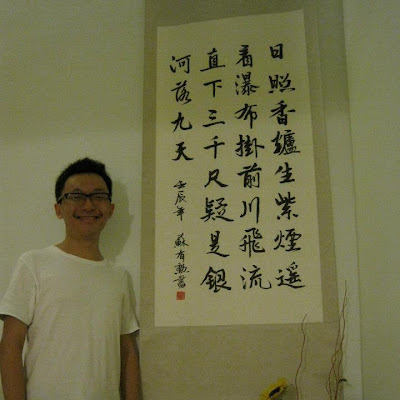 日照香爐生紫煙遥
看瀑布掛前川飛流
直下三千尺疑是銀
河落九天
壬辰年 蘇有勳書